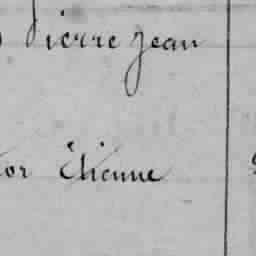 Pierre Jean
or Etienne